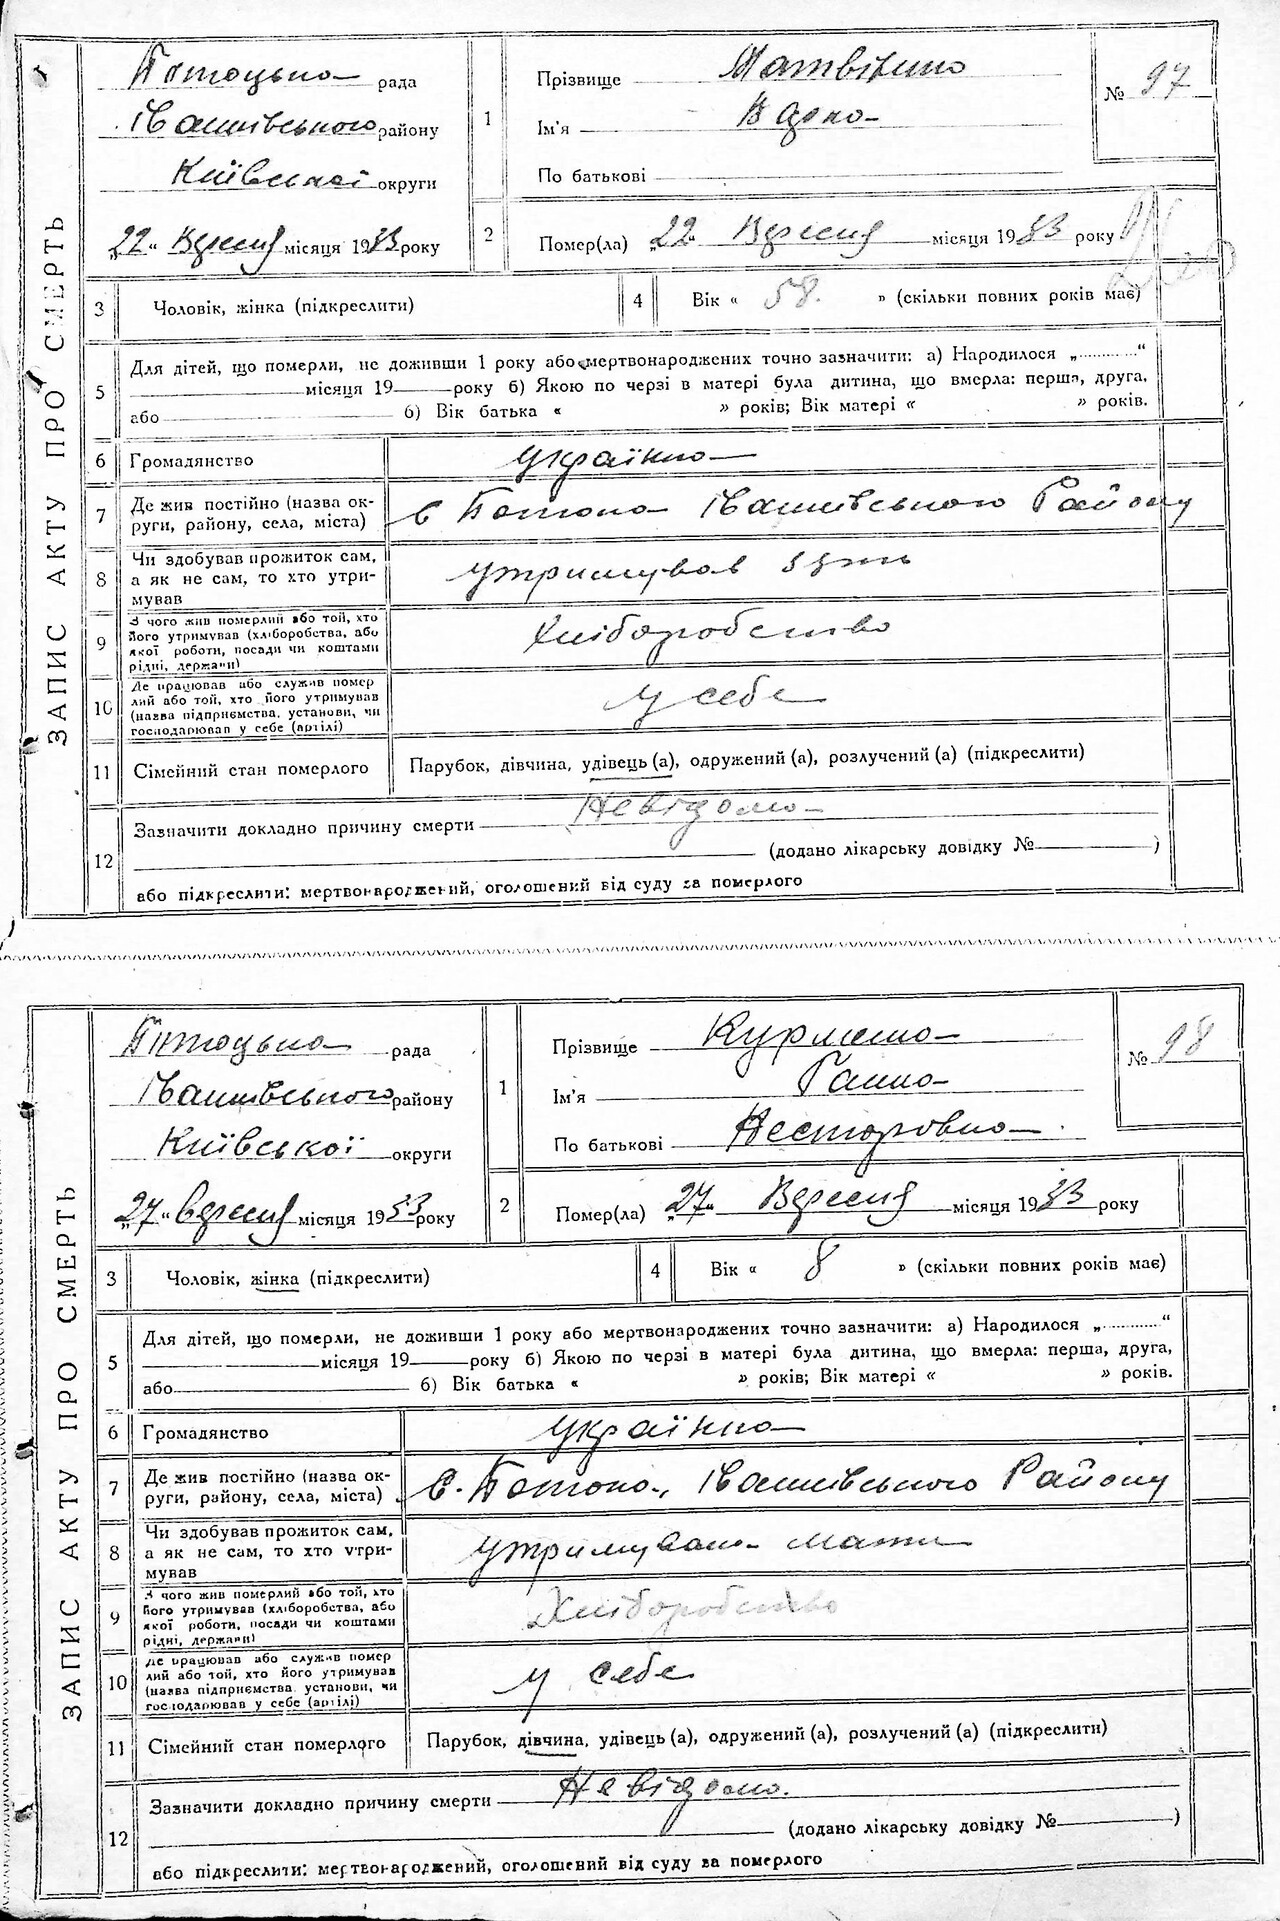 ЗАПИС АКТУ ПРО СМЕРТЬ
Потоцька рада
Івашківського району
Київської округи
„22“ Вересня місяця 1933 року
1
Прізвище
Ім'я
По батькові
№ 97
2
Помер(ла) „22“ Вересня місяця 1933 року
3 Чоловік, жінка (підкреслити)
4 Вік « 58. » (скільки повних років має)
5 Для дітей, що померли, не доживши 1 року або мертвонароджених точно зазначити: а) Народилося „...........“
місяця 19 року б) Якою по черзі в матері була дитина, що вмерла: перша, друга,
або б) Вік батька « » років; Вік матері « » років.
6 Громадянство українка
7 Де жив постійно (назва ок-
руги, району, села, міста)
с Потоки Івашківського Району
8 Чи здобував прожиток сам,
а як не сам, то хто утри-
мував
утримував зять
9 З чого жив померлий або той, хто
його утримував (хліборобства, або
якої роботи, посади чи коштами
рідні, держави)
Хліборобство
10 Де працював або служив помер
лий або той, хто його утримував
(назва підприємства, установи, чи
господарював у себе (артілі)
у себе
11 Сімейний стан померлого Парубок, дівчина, удівець (а), одружений (а), розлучений (а) (підкреслити)
12 Зазначити докладно причину смерти Невідомо
(додано лікарську довідку № )
або підкреслити: мертвонароджений, оголошений від суду за померлого
ЗАПИС АКТУ ПРО СМЕРТЬ
Потоцька рада
Івашківського району
Київської округи
„27“ вересня місяця 1933 року
1
Прізвище
Ім'я Ганна
По батькові Несторовна
№ 98
2
Помер(ла) „27“ Вересня місяця 1933 року
3 Чоловік, жінка (підкреслити)
4 Вік « 8 » (скільки повних років має)
5 Для дітей, що померли, не доживши 1 року або мертвонароджених точно зазначити: а) Народилося „...........“
місяця 19 року б) Якою по черзі в матері була дитина, що вмерла: перша, друга,
або б) Вік батька « » років; Вік матері « » років.
6 Громадянство українка
7 Де жив постійно (назва ок-
руги, району, села, міста)
с. Потоки, Івашківського Району
8 Чи здобував прожиток сам,
а як не сам, то хто утри-
мував
утримувала мати
9 З чого жив померлий або той, хто
його утримував (хліборобства, або
якої роботи, посади чи коштами
рідні, держави)
Хліборобство
10 Де працював або служив помер
лий або той, хто його утримував
(назва підприємства, установи, чи
господарював у себе (артілі)
у себе
11 Сімейний стан померлого Парубок, дівчина, удівець (а), одружений (а), розлучений (а) (підкреслити)
12 Зазначити докладно причину смерти Невідомо.
(додано лікарську довідку № )
або підкреслити: мертвонароджений, оголошений від суду за померлого